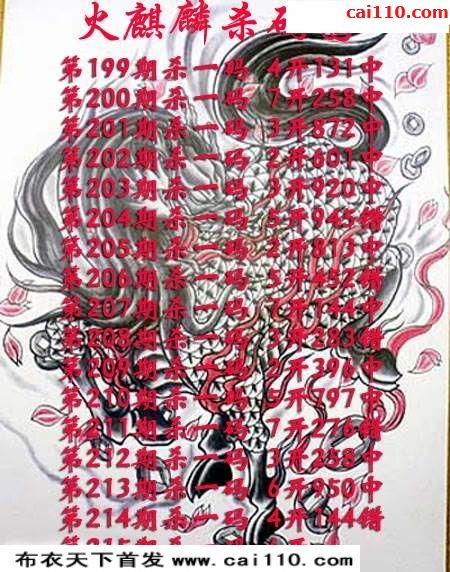 cai110.com
火麒麟杀码
第199期杀一码 4开131中
第200期杀一码 7开258中
第201期杀一码 3开872中
第202期杀一码 2开601中
第203期杀一码 3开920中
第204期杀一码 5开945错
第205期杀一码 2开813中
第206期杀一码 5开452错
第207期杀一码 开144中
第208期杀一码 3开283错
第209期杀一码 2开396中
第210期杀一码 开797中
第211期杀一码 7开276错
第212期杀一码 3开258中
第213期杀一码 6开950中
第214期杀一码 4开144错
布衣天下首发 www.cai110.com